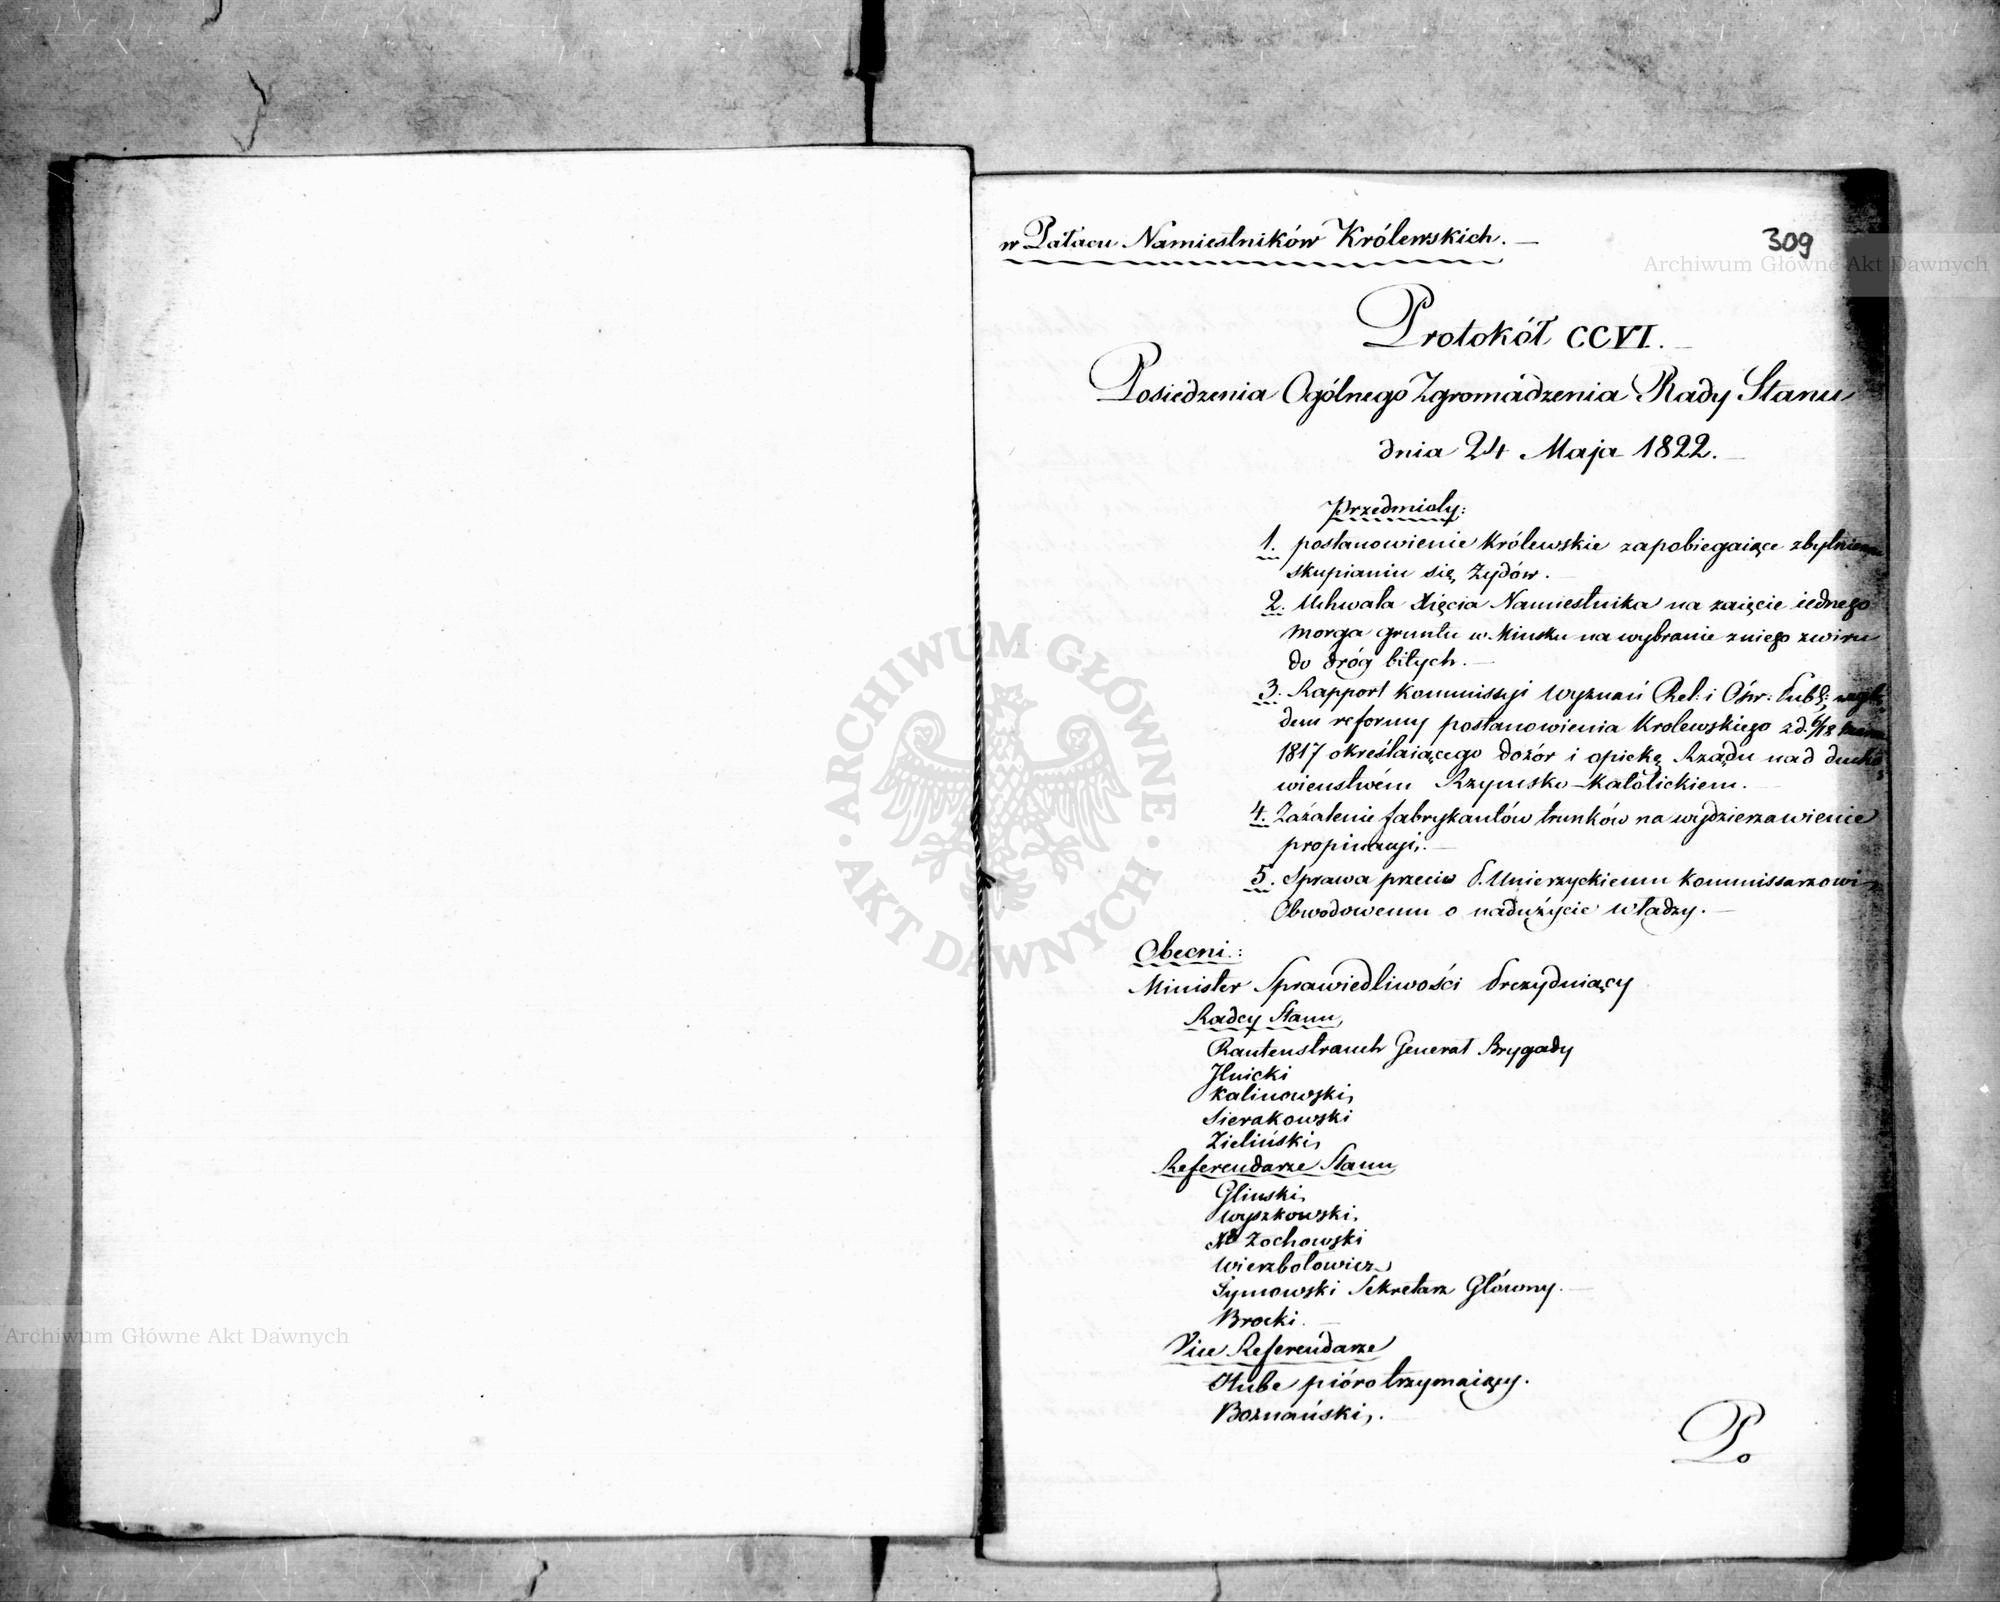 w Pałacu Namiestników Królewskich.
309
Archiwum Główne Akt Dawnych
Protokół CCVI.
Posiedzenia Ogólnego Zgromadzenia Rady Stanu
dnia 24 Maja 1822.
Przedmioty:
1. postanowienie Królewskie zapobiegaiące zbytniemu
skupianiu się Żydów.
2. Uchwała Xięcia Namiestnika na zaięcie iednego
morga gruntu w Minsku na wybranie zniego zwiru
do dróg bitych.
3. Rapport Kommissyi Wyznań Rel: i Ośw: Publ: wzglę-
dem reformy postanowienia Krolewskiego z d. 6/18
1817 określaiącego dozór i opiekę Rządu nad ducho-
wieństwém Rzymsko-Katolickiem.
4. Zażalenie fabrykantów trunków na wydzierzawienie
propinacyi.
5. Sprawa przeciw P. Unierzyckiemu Kommissarzowi
Obwodowemu o nadużycie władzy.
Obecni:
Minister Sprawiedliwości Prezyduiący
Radcy Stanu,
Rautenstrauch Generał Brygady
Ilnicki
Kalinowski,
Sierakowski
Zieliński,
Referendarze Stanu
Glinski,
Wyszkowski,
Żochowski
Wierzbołowicz,
Szymowski Sekretarz Główny.
Brocki.
Vice Referendarze
Hube pióro trzymaiący.
Boznański,.
Po
ARCHIWUM GŁÓWNE
AKT DAWNYCH
Archiwum Główne Akt Dawnych